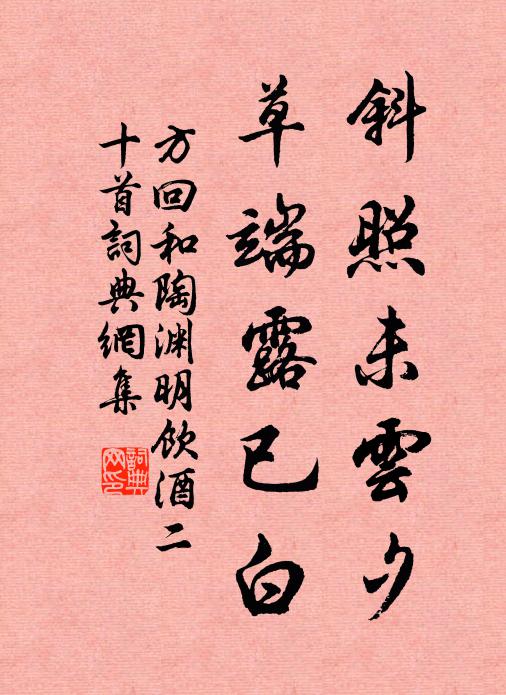 斜照未雲夕
草端露已白
方回和陶渊明飲酒二
十首詞典網集
詞典
网印